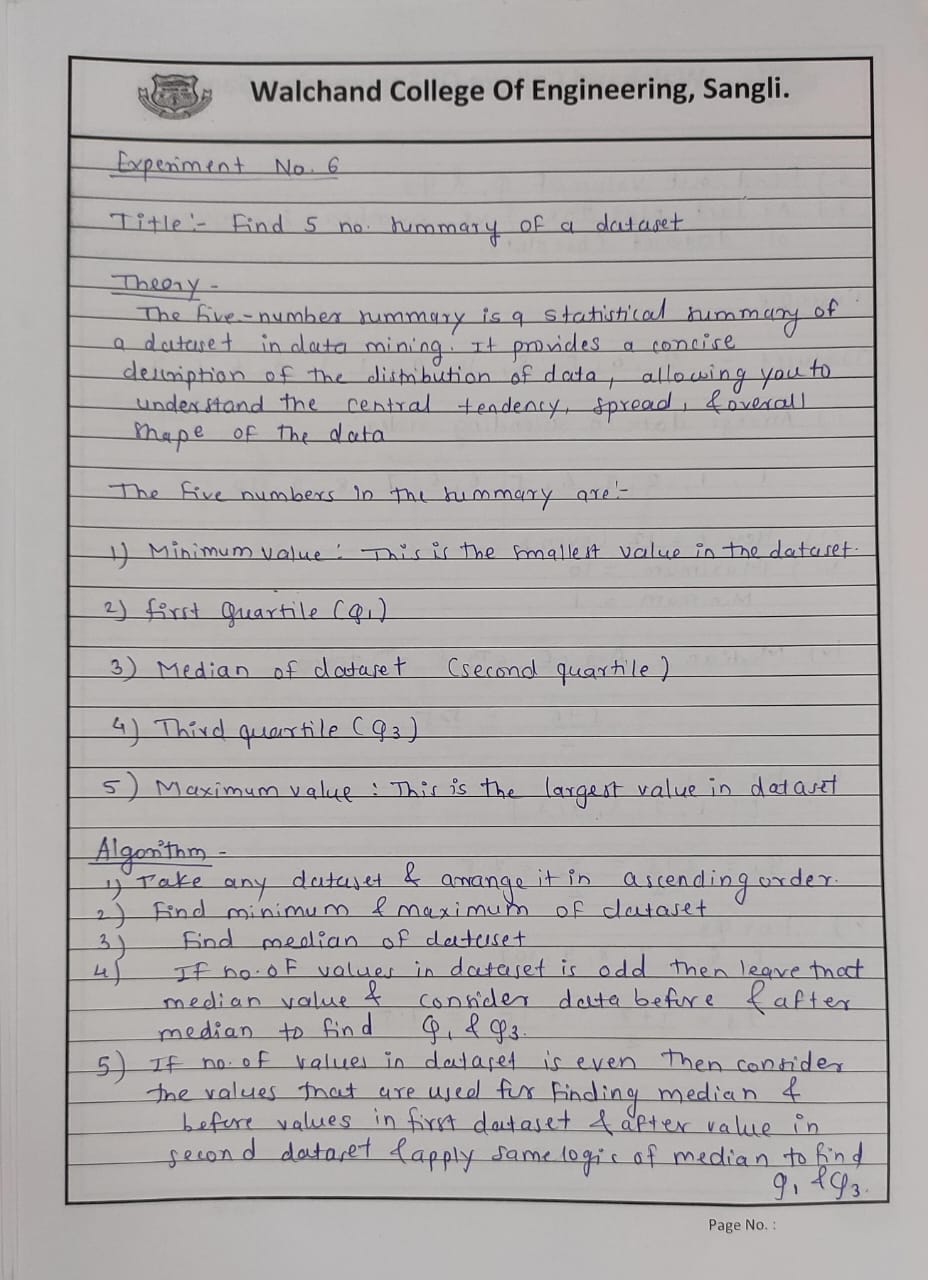 Walchand College Of Engineering, Sangli.
Experiment No. 6
Title:- Find 5 no. summary of a dataset
Theory -
The five-number summary is a statistical summary of
a dataset in data mining. It provides a concise
description of the distribution of data, allowing you to
understand the central tendency, spread, & overall
shape of the data
The five numbers in the summary are:-
1) Minimum value : This is the smallest value in the dataset.
2) first quartile (Q1)
3) Median of dataset (second quartile)
4) Third quartile (Q3)
5) Maximum value : This is the largest value in dataset
Algorithm -
1) Take any dataset & arrange it in ascending order.
2) Find minimum & maximum of dataset
3) Find median of dataset
4) If no. of values in dataset is odd then leave that
median value & consider data before & after
median to find Q1 & Q3.
5) If no. of values in dataset is even then consider
the values that are used for finding median &
before values in first dataset & after value in
second dataset & apply same logic of median to find
Q1 & Q3.
Page No. :